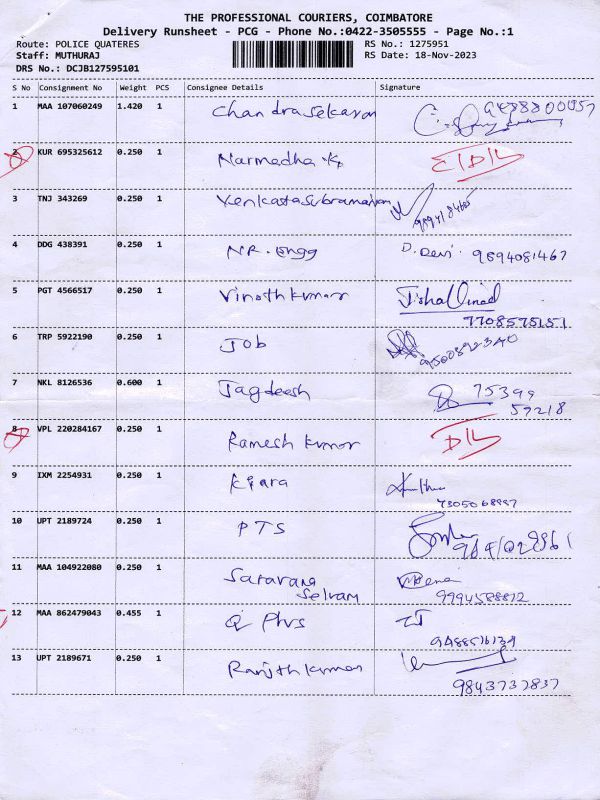 THE PROFESSIONAL COURIERS, COIMBATORE
Delivery Runsheet - PCG - Phone No.:0422-3505555 - Page No.:1
Route: POLICE QUATERES RS No.: 1275951
Staff: MUTHURAJ RS Date: 18-Nov-2023
DRS No.: DCJB127595101
S No Consignment No Weight PCS Consignee Details Signature
1 MAA 107060249 1.420 1 Chandrasekaran
2 KUR 695325612 0.250 1 Narmadha.K
3 TNJ 343269 0.250 1 Venkastasubramaniyam
4 DDG 438391 0.250 1 NR. Engg D. Devi. 9894081467
5 PGT 4566517 0.250 1 Vinothkumar
7708575151
6 TRP 5922190 0.250 1 Job
7 NKL 8126536 0.600 1 Jagdeesh 75399
57218
8 VPL 220284167 0.250 1 Ramesh kumar D/L
9 IXM 2254931 0.250 1 Kiara
10 UPT 2189724 0.250 1 PTS
11 MAA 104922080 0.250 1 Saravana
Selvam
9994588812
12 MAA 862479043 0.455 1 Q Plus
13 UPT 2189671 0.250 1 Ranjithkumar
9843737837